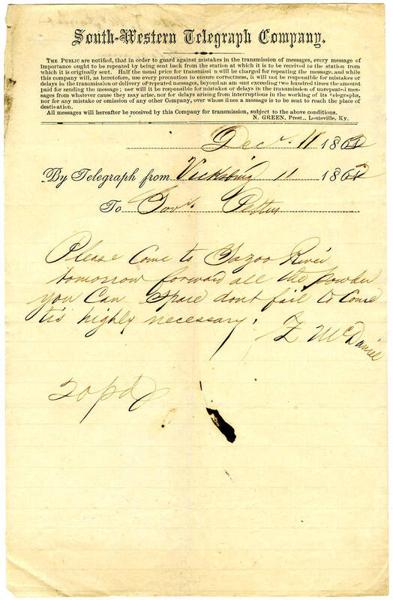 South-Western Telegraph Company.
THE PUBLIC are notified, that in order to guard against mistakes in the transmission of messages, every message of
importance ought to be repeated by being sent back from the station at which it is to be received to the station from
which it is originally sent. Half the usual price for transmission will be charged for repeating the message, and while
this company will, as heretofore, use every precaution to ensure correctness, it will not be responsible for mistakes or
delays in the transmission or delivery of repeated messages, beyond an amount exceeding two hundred times the amount
paid for sending the message; nor will it be responsible for mistakes or delays in the transmission of unrepeated mes-
sages from whatever cause they may arise, nor for delays arising from interruptions in the working of its telegraphs,
nor for any mistake or omission of any other Company, over whose lines a message is to be sent to reach the place of
destination.
All messages will hereafter be received by this Company for transmission, subject to the above conditions.
N. GREEN, Prest., Louisville, Ky.
Decr 11 1862
By Telegraph from Vicksburg 11 1862
To Govr Pettus
Please Come to Yazoo River
tomorrow forward all the powder
you Can Spare dont fail to Come
tis highly necessary.
Z McDaniel
20 pd